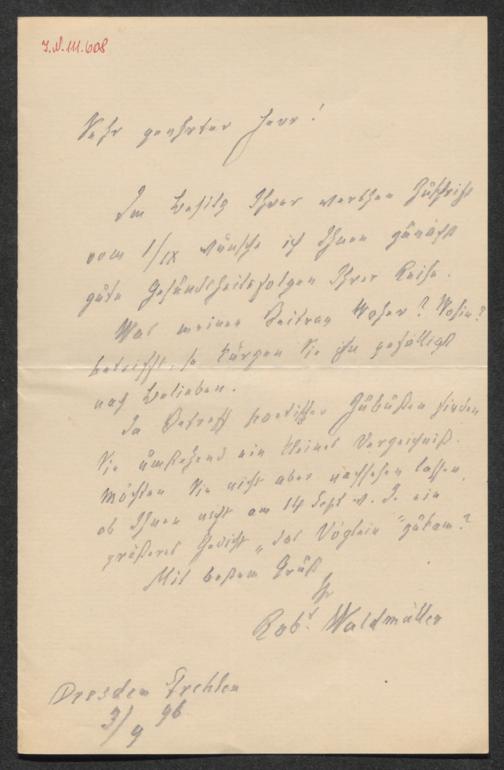 I.N. 111.608
Sehr geehrter Herr!
Im Besitz Ihrer werthen Zuschrift
vom 1/IX wünsche ich Ihnen zunächst
gute Gesundheitsfolgen Ihrer Reise.
Was meinen Beitrag Woher? Wohin?
betrifft, so kürzen Sie ihn gefälligst
nach Belieben.
In Betreff poetischer Zubußen finden
Sie umstehend ein kleines Verzeichniß.
Möchten Sie nicht aber nachsehen lassen,
ob Ihnen nicht am 14 Sept v. J. ein
größeres Gedicht „das Vöglein" zukam?
Mit bestem Gruß
Ihr
Robt. Waldmüller
Dresden Strehlen
3/9 96